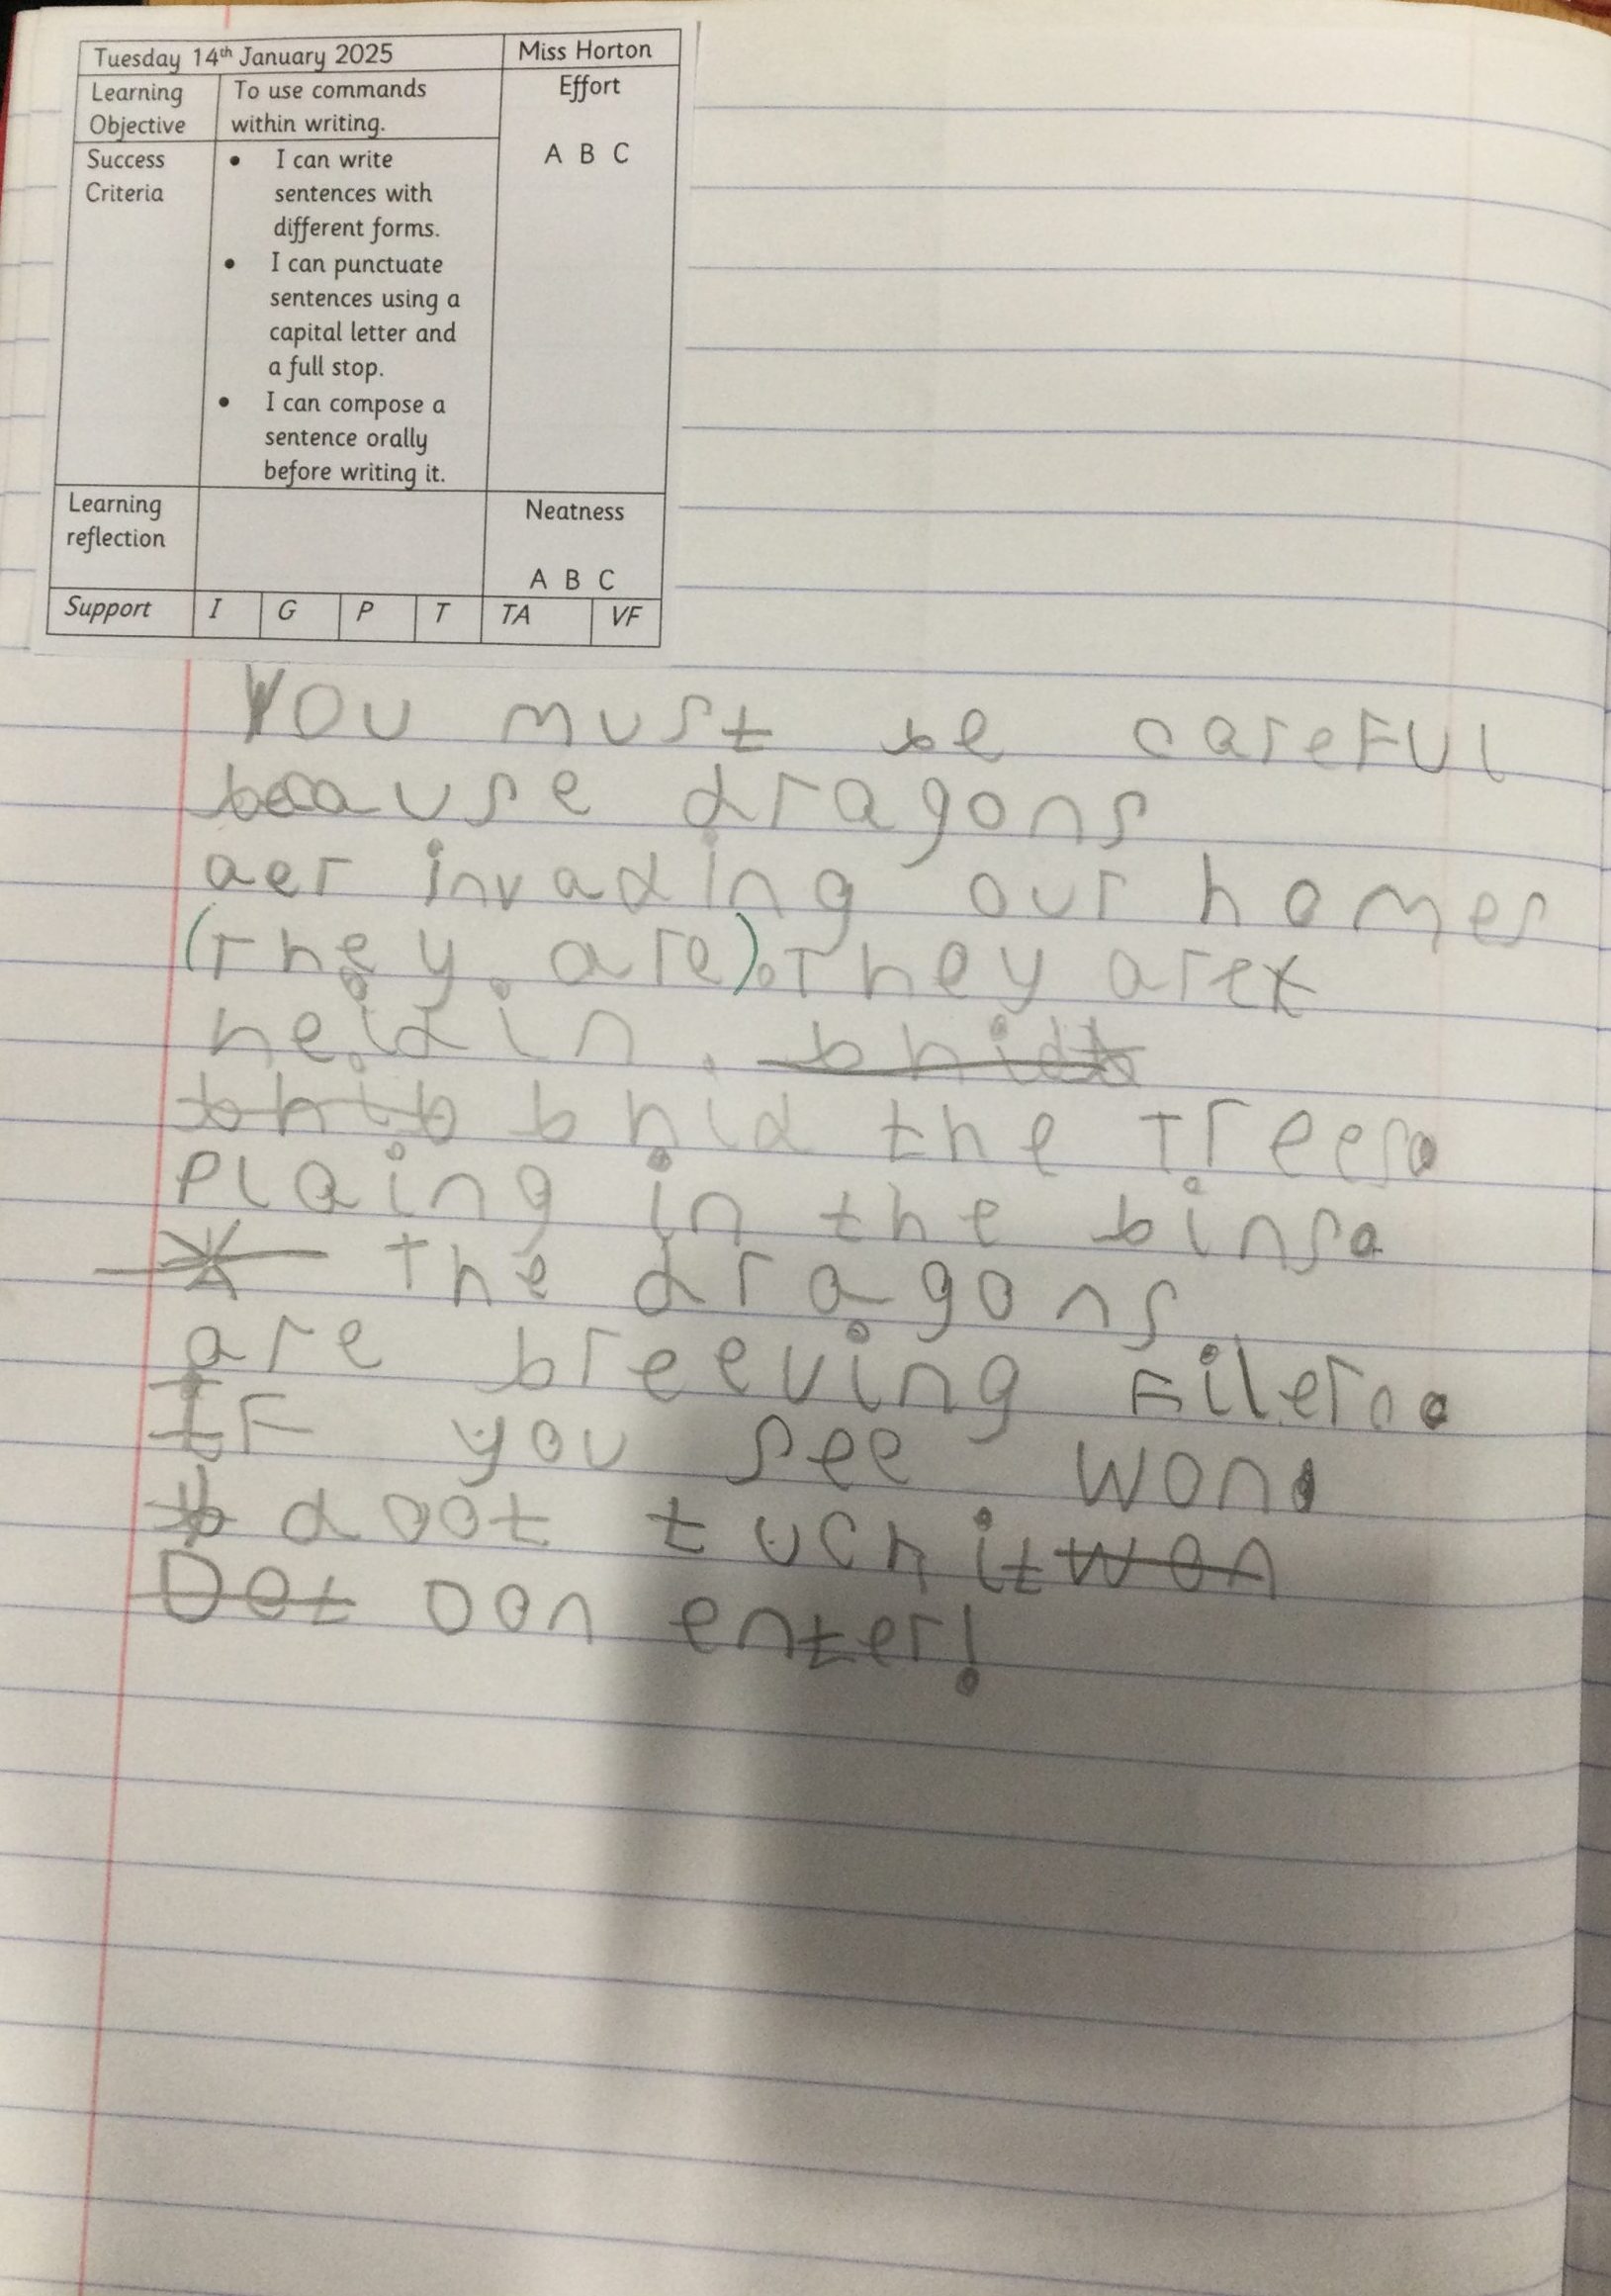 Tuesday 14th January 2025 Miss Horton
Learning Objective To use commands within writing. Effort
A B C
Success Criteria
• I can write
sentences with
different forms.
• I can punctuate
sentences using a
capital letter and
a full stop.
• I can compose a
sentence orally
before writing it.
Learning reflection Neatness
A B C
Support I G P T TA VF
You must be careful
because dragons
aer invading our homes
(They. are). They are
heidin.
bhid the Trees.
Plaing in the bins.
the dragons
are breeving Filer.
IF you see won
doot tuch it
Don enter!